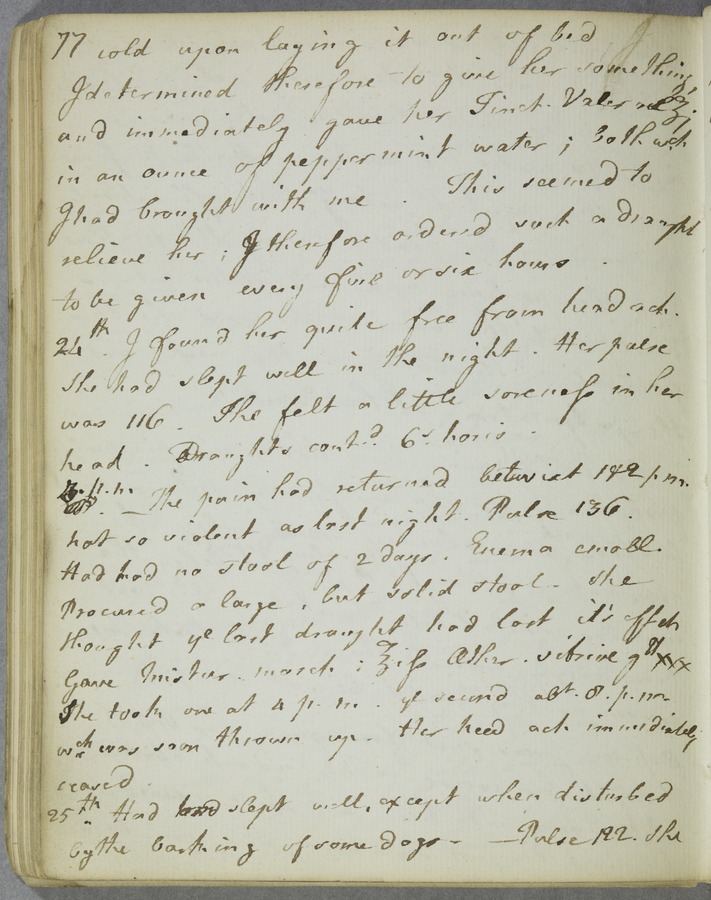 77 cold upon laying it out of bed
I determined therefore to give her something,
and immediately gave her Tinct. Valerian ʒj.
in an ounce of peppermint water ; both wch
I had brought with me . This seemed to
relieve her ; I therefore ordered such a draught
to be given every five or six hours .
24th. I found her quite free from head ach.
She had slept well in the night . Her pulse
was 116 . She felt a little soreness in her
head . Draughts contd. 6s. horis .
3. p.m. — The pain had returned betwixt 1 & 2 p.m.
not so violent as last night. Pulse 136.
Had had no stool of 2 days. Enema emoll.
Procured a large, but solid stool. She
thought ye last draught had lost it's effect
Gave Mistur. mosch : ℥iſs Æther. vitriol. gtt xxx
She took one at 4 p.m. ye second abt. 8. p.m.
wch was soon thrown up. Her head ach immediately
ceased .
25th. Had slept well, except when disturbed
by the barking of some dogs — Pulse 122. She